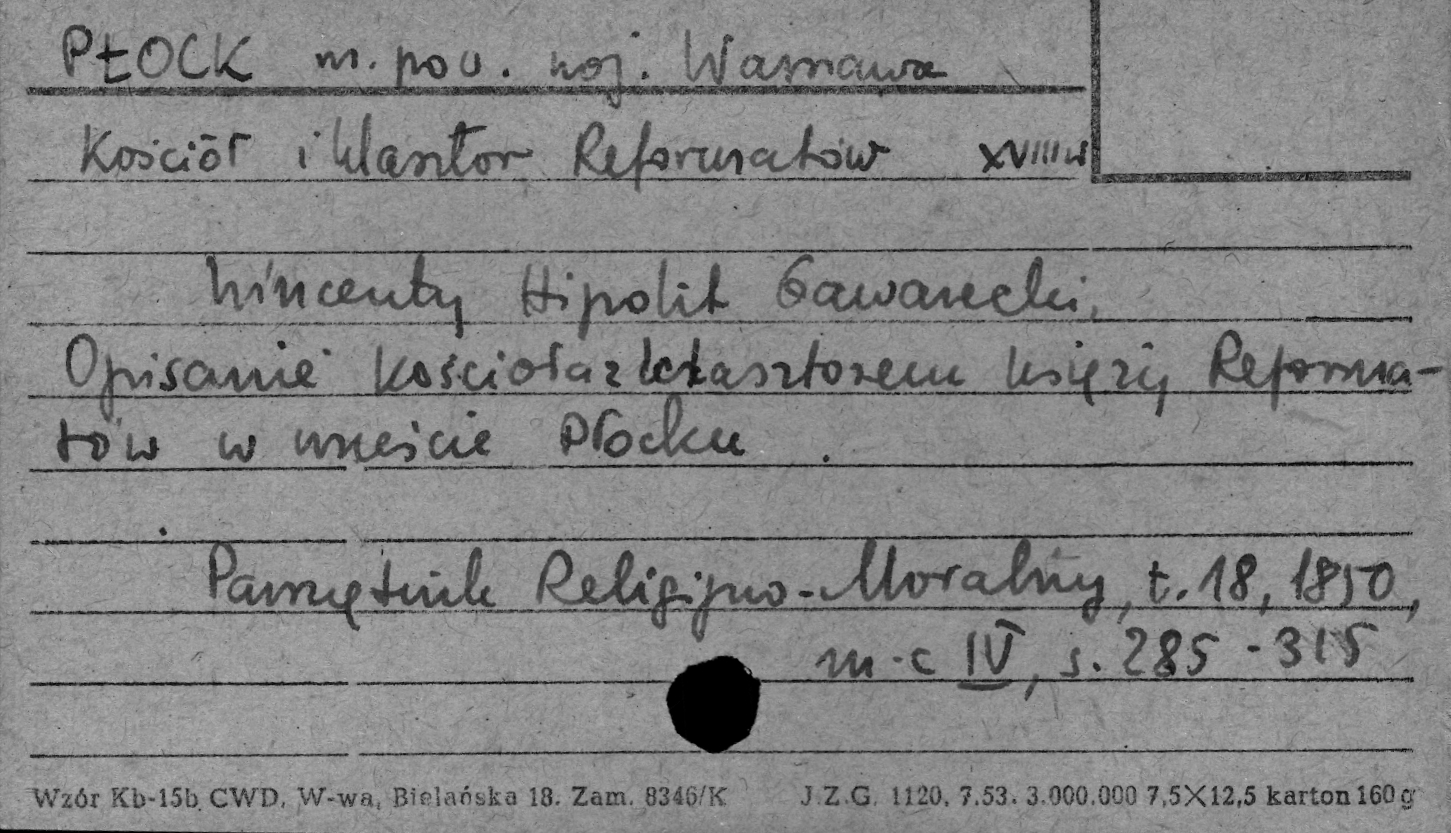 PŁOCK m. pow. woj. Warszawa
Kościół i klasztor Reformatów XVIII w
Wincenty Hipolit Gawarecki,
Opisanie kościoła z klasztorem księży Reforma-
tów w mieście Płocku.
Pamiętnik Religijno-Moralny, t. 18, 1850,
m-c IV, s. 285-315
Wzór Kb-15b CWD, W-wa, Bielańska 18. Zam. 8346/K J.Z.G. 1120, 7.53. 3.000.000 7,5×12,5 karton 160 g